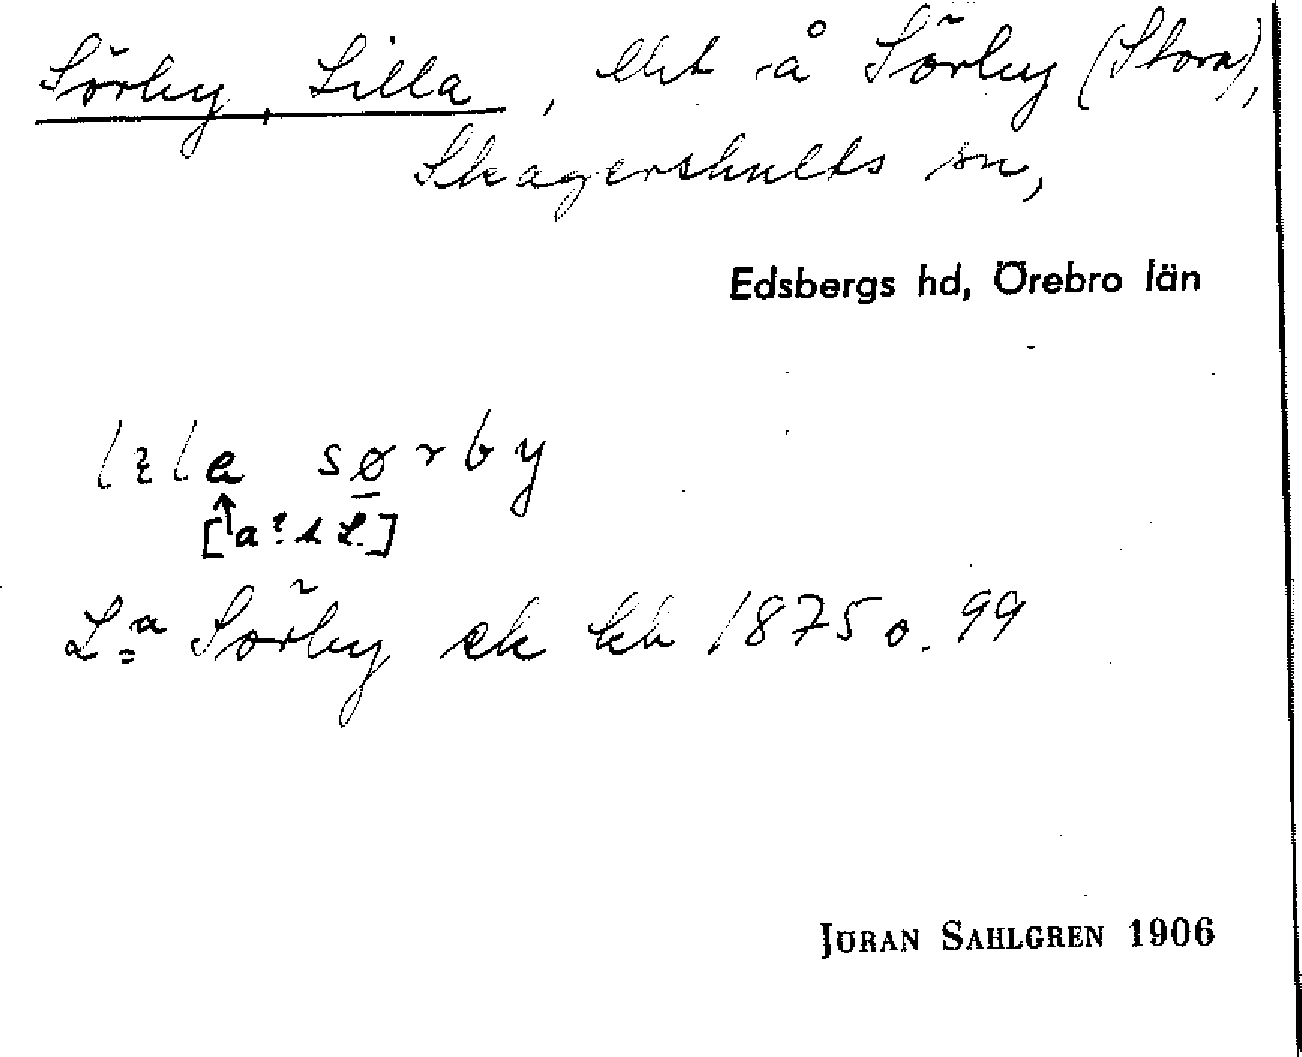 Sörby, Lilla, lht å Sörby (Stora),
Skagershults sn,
Edsbergs hd, Örebro län
lɩla sørby
[a? L.]
L:a Sörby ek kb 1875 o. 99
JÖRAN SAHLGREN 1906